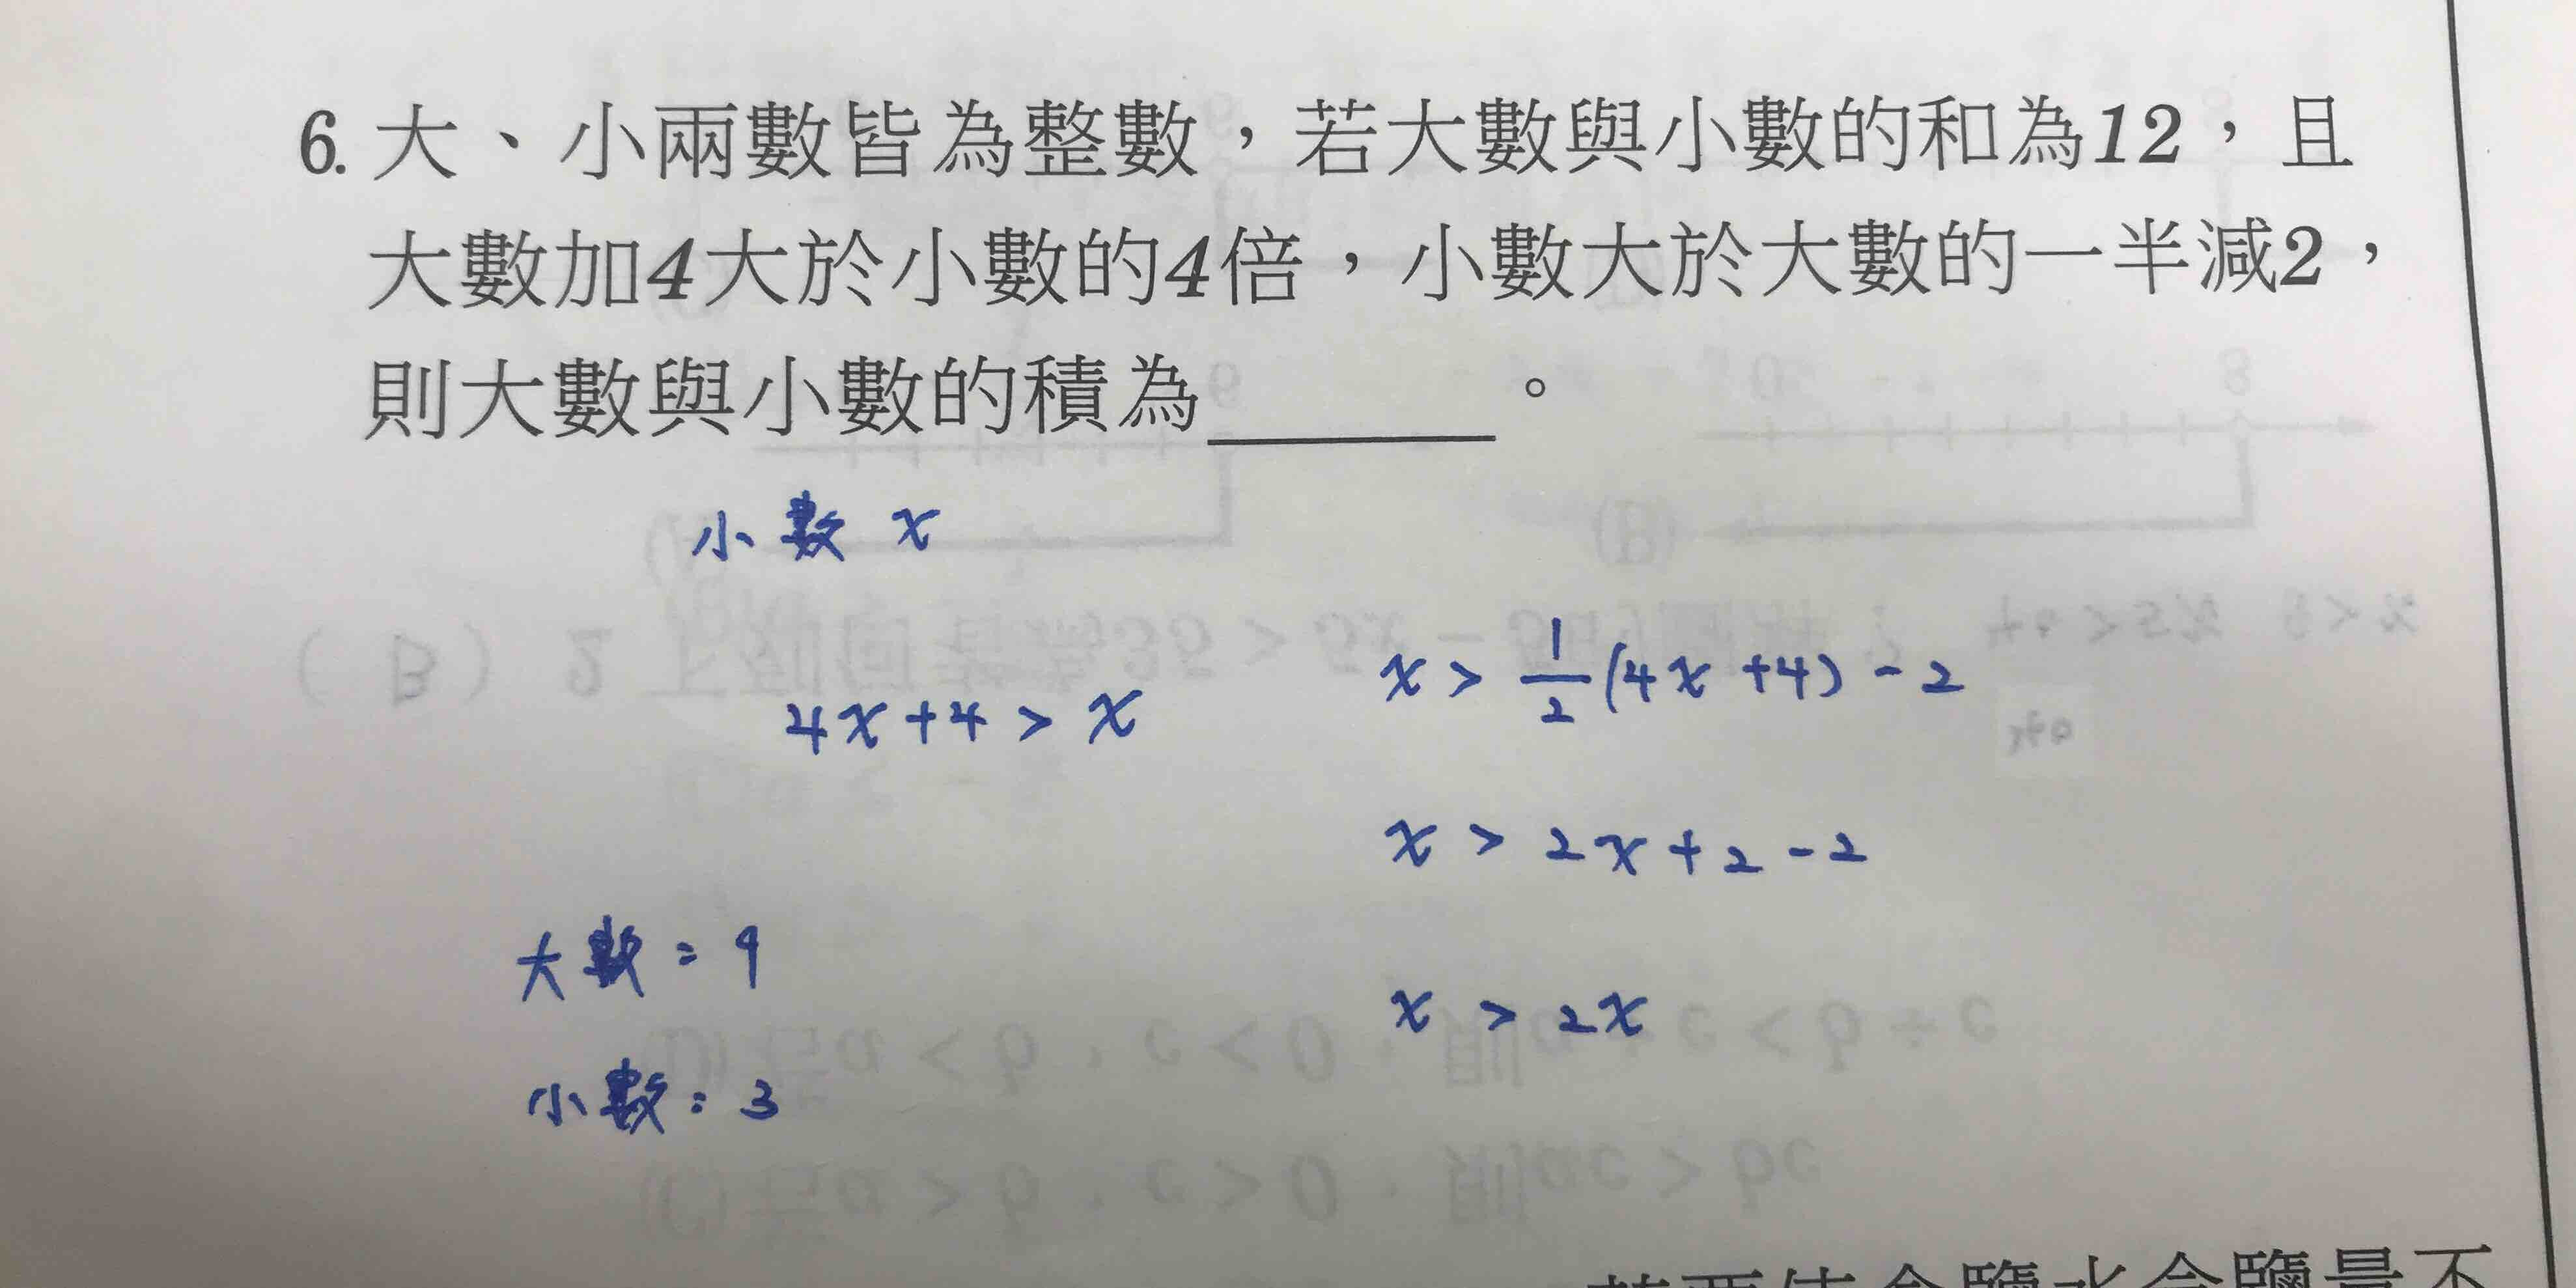 6. 大、小兩數皆為整數，若大數與小數的和為12，且
大數加4大於小數的4倍，小數大於大數的一半減2，
則大數與小數的積為______。
小數 x
4x+4 > x
x > 1/2 (4x+4) - 2
x > 2x+2-2
x > 2x
大數 = 9
小數 : 3